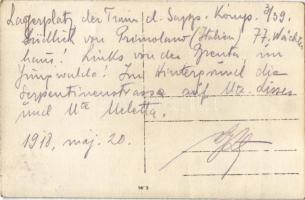 Lagerplatz der Train d. Sapp. Komp. 3/39.
Südlich von Primolano (Italien) 77. Wächter
haus. Links von der Brenta im
Jungwalde. Im Hintergrund die
Serpentinenstrasse auf Mte. Lisser
und Mte Meletta.
1918. maj. 20.